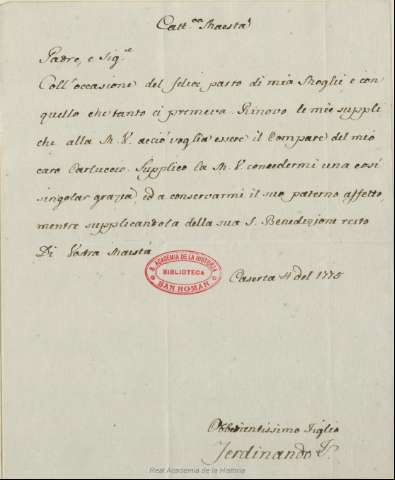 Catt.ca Maestà
Padre, e Sig.re
Coll'occasione del felice parto di mia Moglie, e con
quello che tanto ci premeva. Rinovo le mie suppli
che alla M. V. acciò voglia essere il Compare del mio
caro Carluccio. Supplico la M. V. concedermi una così
singolar grazia, ed a conservarmi il suo paterno affetto,
mentre supplicandola della sua S. Benedizione resto
Di Vostra Maestà
R. ACADEMIA DE LA HISTORIA
BIBLIOTECA
SAN ROMAN
Caserta del 1775
Obbedientissimo Figlio
Ferdinando
Real Academia de la Historia